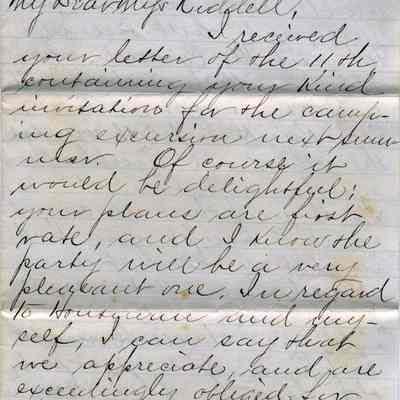 My Dear Mrs Riddell,
I recieved
your letter of the 11th
containing your kind
invitation for the camp-
ing excursion next sum-
mer. Of course it
would be delightful;
your plans are first
rate, and I know the
party will be a very
pleasant one. In regard
to and my-
self, I can say that
we appreciate, and are
exceedingly obliged for